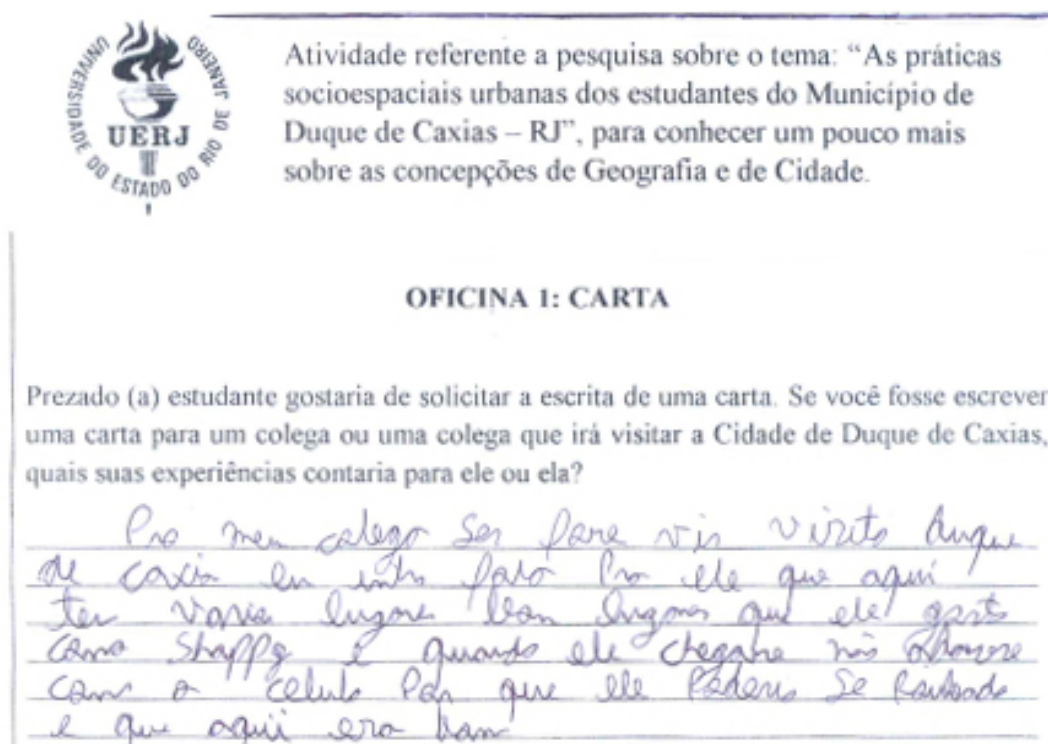 UNIVERSIDADE DO ESTADO DO RIO DE JANEIRO
UERJ
Atividade referente a pesquisa sobre o tema: “As práticas
socioespaciais urbanas dos estudantes do Município de
Duque de Caxias – RJ”, para conhecer um pouco mais
sobre as concepções de Geografia e de Cidade.
OFICINA 1: CARTA
Prezado (a) estudante gostaria de solicitar a escrita de uma carta. Se você fosse escrever
uma carta para um colega ou uma colega que irá visitar a Cidade de Duque de Caxias,
quais suas experiências contaria para ele ou ela?
Pro meu colego ser para vir vizita duque
de caxia eu falo Pro ele que aqui
ter varia lugare bom lugares que ele gosta
como Shoppg e quando ele chegare não
com o celula Por que ele Poderis Se Roubado
e que aqui era bom